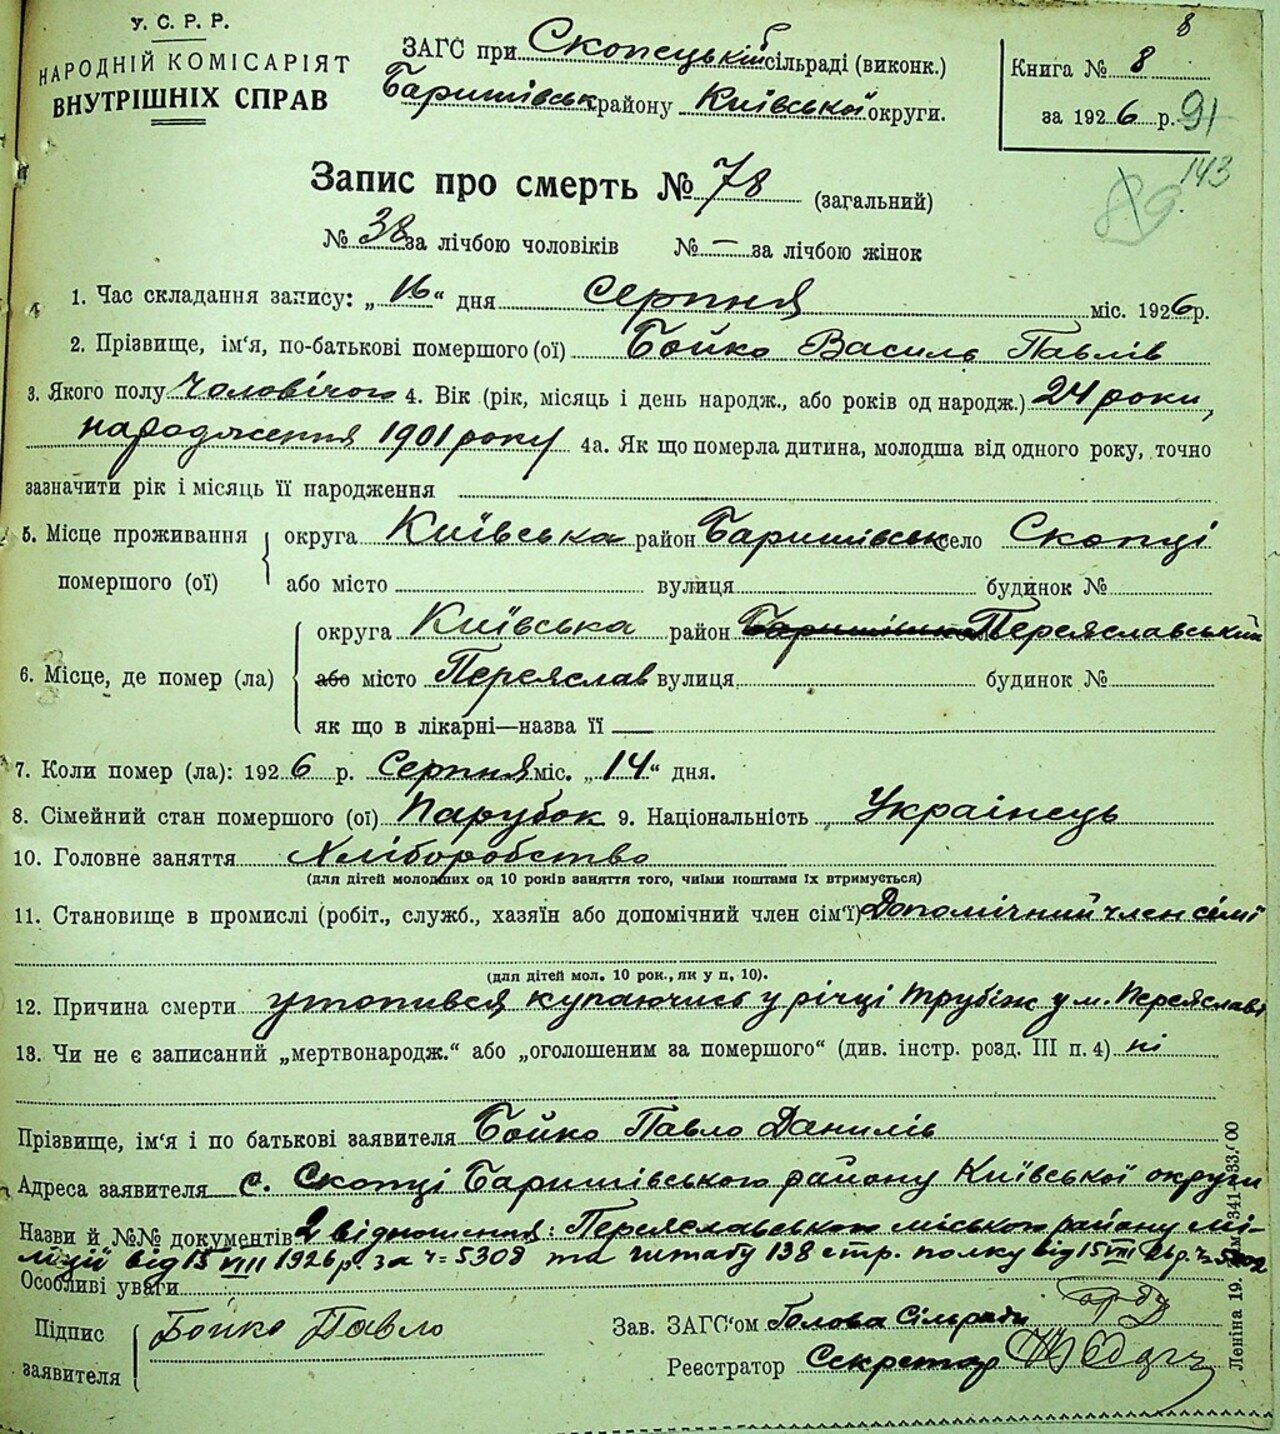 8
У. С. Р. Р.
НАРОДНІЙ КОМІСАРІЯТ
ВНУТРІШНІХ СПРАВ
ЗАГС при Скопецькій сільраді (виконк.)
Баришівськ району Київської округи.
Книга № 8
за 1926 р. 91
143
89
Запис про смерть № 78 (загальний)
№ 38 за лічбою чоловіків № — за лічбою жінок
1. Час складання запису: „16“ дня Серпня міс. 1926 р.
2. Прізвище, ім'я, по-батькові помершого (ої) Бойко Василь Павлів
3. Якого полу Чоловічого 4. Вік (рік, місяць і день народж., або років од народж.) 24 роки,
народження 1901 року 4а. Як що померла дитина, молодша від одного року, точно
зазначити рік і місяць її народження
5. Місце проживання помершого (ої) округа Київська район Баришівськ село Скопці
або місто вулиця будинок №
6. Місце, де помер (ла) округа Київська район Баришівськ Переяславський
або місто Переяслав вулиця будинок №
як що в лікарні—назва її —
7. Коли помер (ла): 1926 р. Серпня міс. „14“ дня.
8. Сімейний стан помершого (ої) Парубок 9. Національність Українець
10. Головне заняття Хліборобство
(для дітей молодших од 10 років заняття того, чиїми коштами їх втримується)
11. Становище в промислі (робіт., служб., хазяїн або допомічний член сім'ї) Допомічний член сімї
(для дітей мол. 10 рок., як у п. 10).
12. Причина смерти утопився купаючись у річці Трубіж у м. Переяславі
13. Чи не є записаний „мертвонародж.“ або „оголошеним за помершого“ (див. інстр. розд. III п. 4) ні
Прізвище, ім'я і по батькові заявителя Бойко Павло Данилів
Адреса заявителя с. Скопці Баришівського району Київської округи
Назви й №№ документів 2 відношення: Переяславського міського району мі-
ліції від 15 VIII 1926 р. за ч= 5308 та штабу 138 стр. полку від 15 VIII 26 р. ч=
Особливі уваги
Підпис заявителя Бойко Павло
Зав. ЗАГС'ом Голова Сільради
Реєстратор Секретар
Леніна 19.